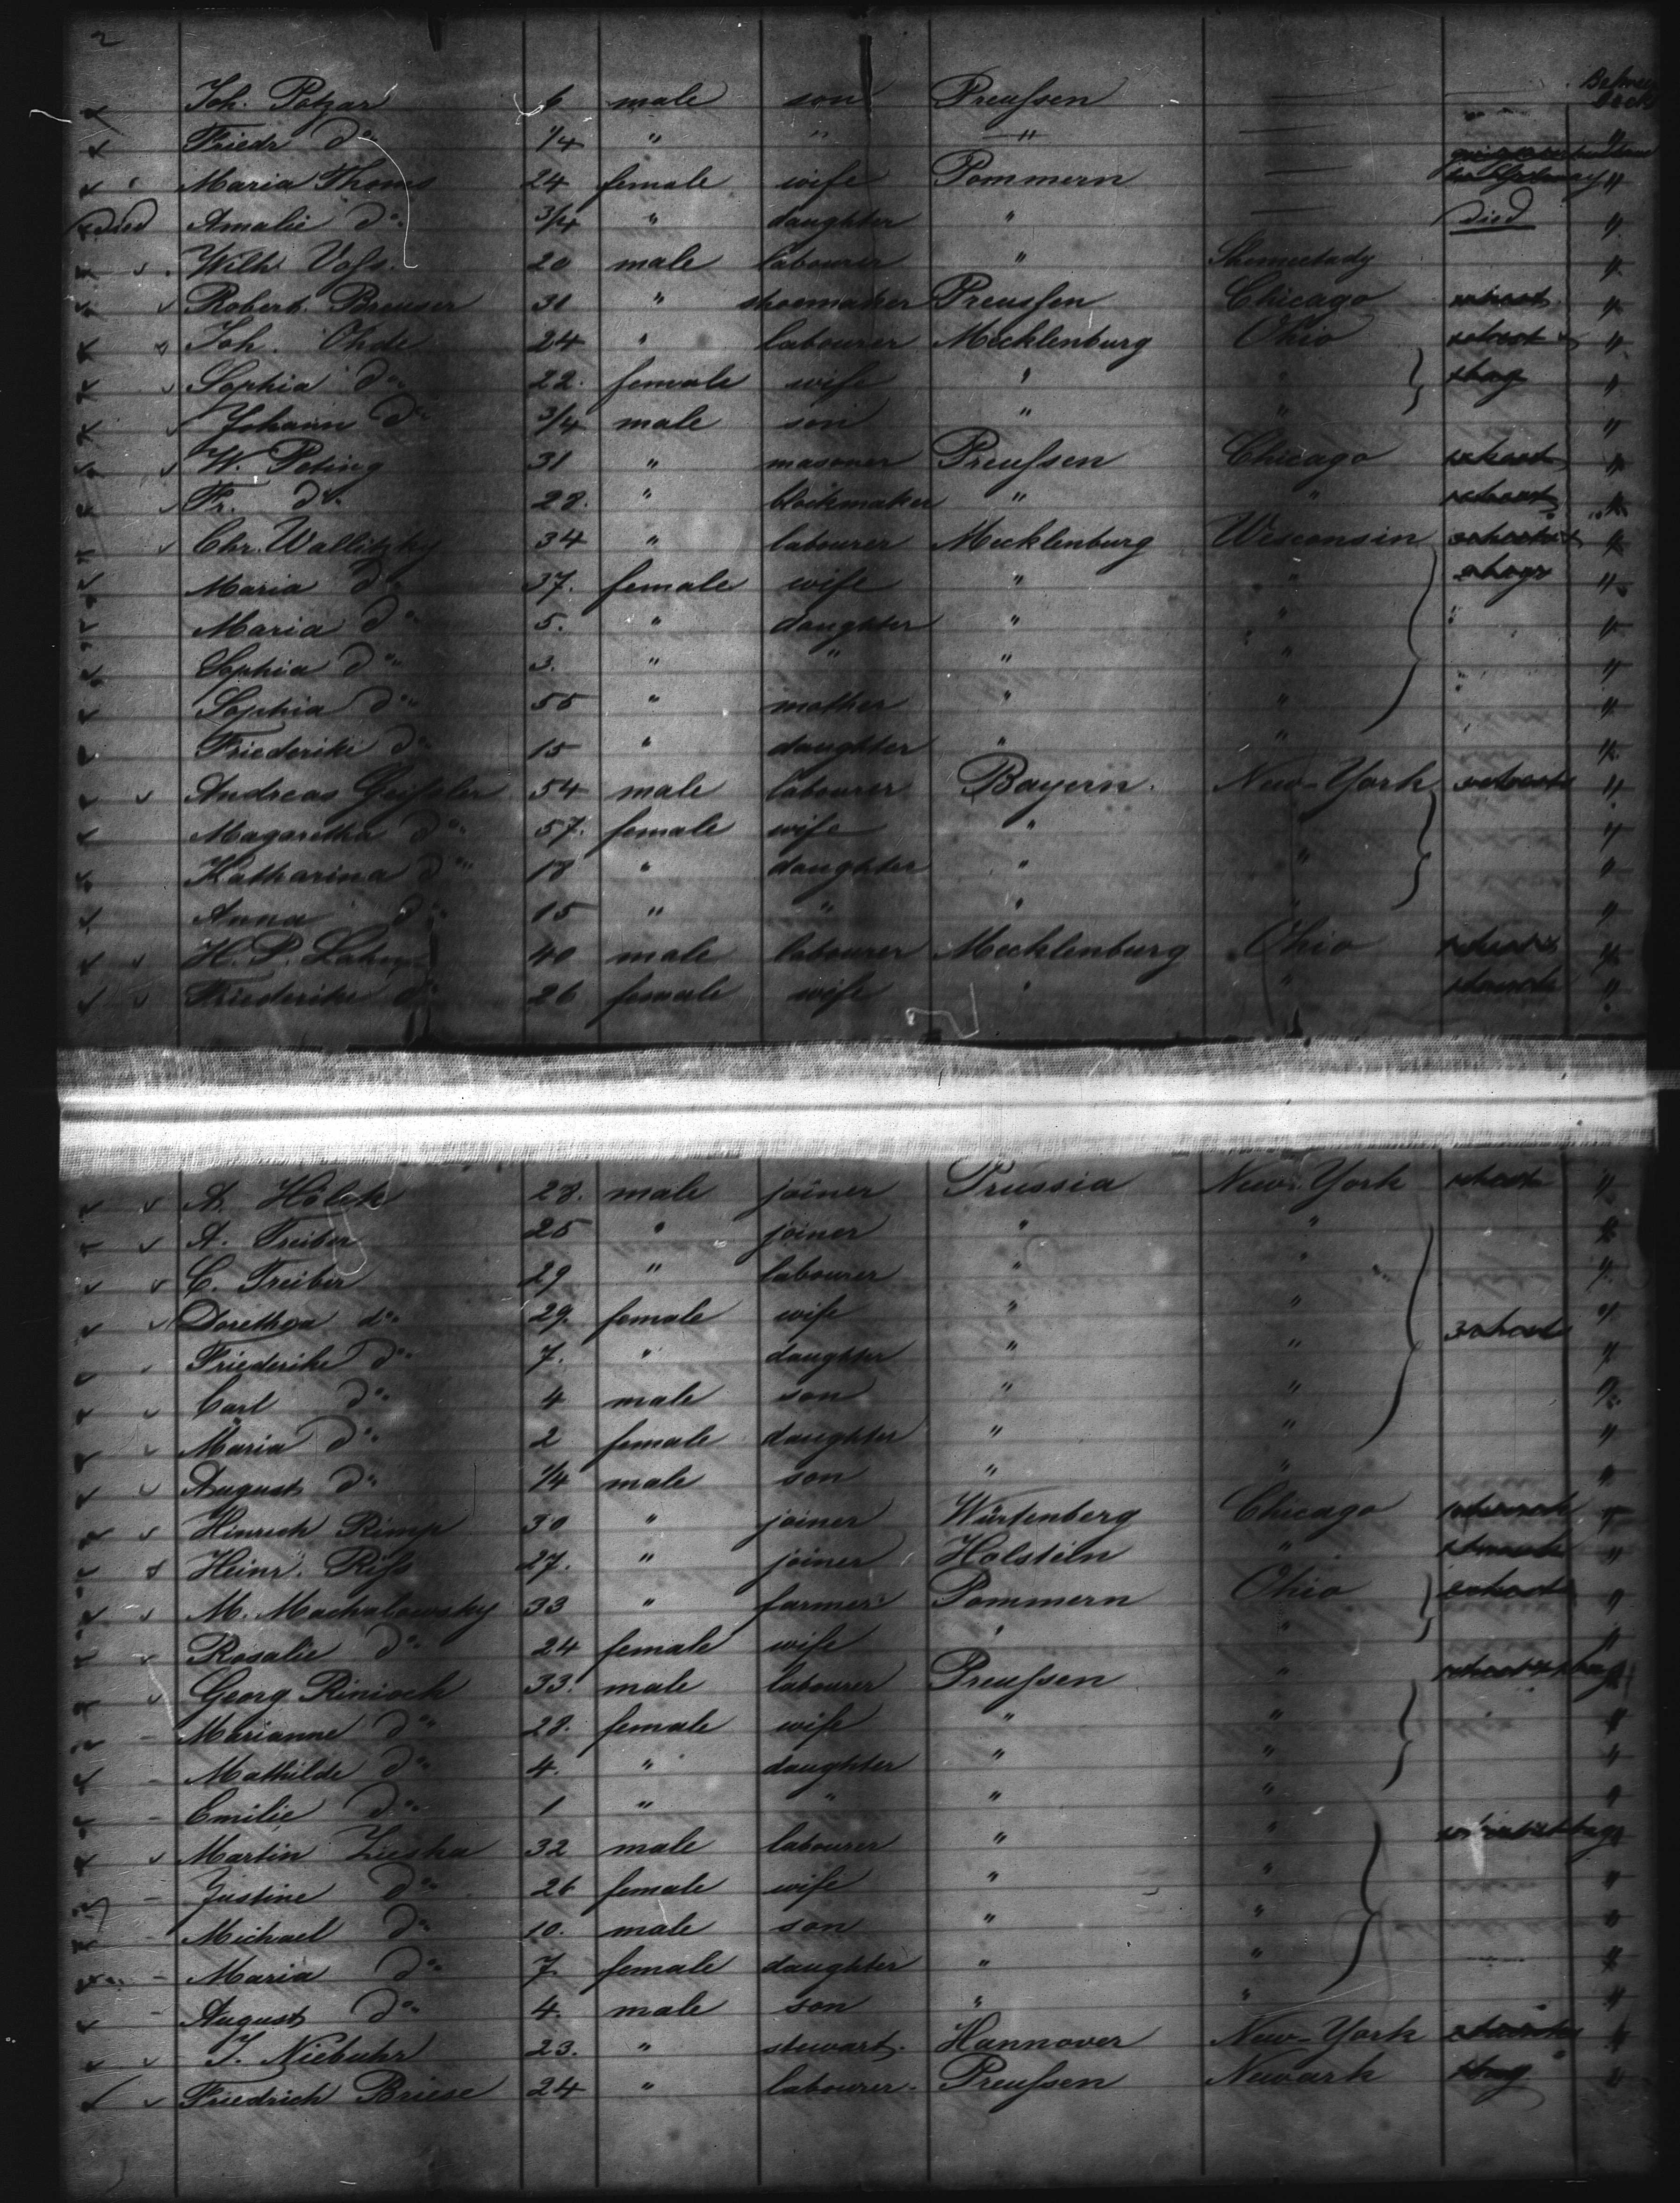 2
Between decks
Joh. Potzar 6 male son Preussen —
Friedr do 1/4 " " — " —
Maria Thoms 24 female wife Pommern — "
died Amalie do 3/4 " daughter " — died "
Wilh. Voss. 20 male labourer " Shenectady "
Robert. Breuser 31 " shoemaker Preussen Chicago "
Joh. Ohde 24 " labourer Mecklenburg Ohio "
Sophia do 22. female wife " " "
Johann do 3/4 male son " " "
W. Poting 31 " masoner Preussen Chicago "
Fr. do 28. " blockmaker " " "
Chr. Wallitzky 34 " labourer Mecklenburg Wisconsin "
Maria do 37. female wife " " "
Maria do 5. " daughter " " "
Sophia do 3. " " " " "
Sophia do 55 " mother " " "
Friederike do 15 " daughter " " "
Andreas Geissler 54 male labourer Bayern. New-York "
Magaretha do 57. female wife " " "
Katharina do 18 " daughter " " "
Anna do 15 " " " " "
H. P. 40 male labourer Mecklenburg Ohio "
Friederike do 26 female wife " " "
A. Hölck 28. male joiner Prussia New-York "
A. Treiber 25 " joiner " " "
C. Treiber 29 " labourer " " "
Dorethea do 29. female wife " " "
Friederike do 7. " daughter " " "
Carl do 4 male son " " "
Maria do 2 female daughter " " "
August do 1/4 male son " " "
Hinrich Rimp 30 " joiner Würtenberg Chicago "
Heinr. Riss 27. " joiner Holstein " "
M. Machalowsky 33 " farmer Pommern Ohio "
Rosalie do 24 female wife " " "
Georg Rinioch 33. male labourer Preussen " "
Marianne do 28. female wife " " "
Mathilde do 4. " daughter " " "
Emilie do 1 " " " " "
Martin Zieska 32 male labourer " " "
Justine do 26 female wife " " "
Michael do 10. male son " " "
Maria do 7. female daughter " " "
August do 4. male son " " "
J. Niebuhr 23. " stewart. Hannover New-York "
Friedrich Briese 24 " labourer. Preussen Newark "